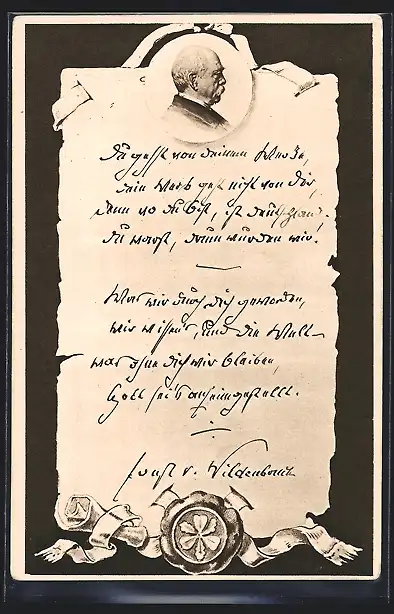 Du gehst von deinem Werke,
dein Werk geht nicht von dir,
denn wo du bist, ist Deutschland,
du warst, drum wurden wir.
Was wir durch dich geworden,
wir wissen's, und die Welt –
was ohne dich wir bleiben,
Gott sei's anheimgestellt.
Ernst v. Wildenbruch